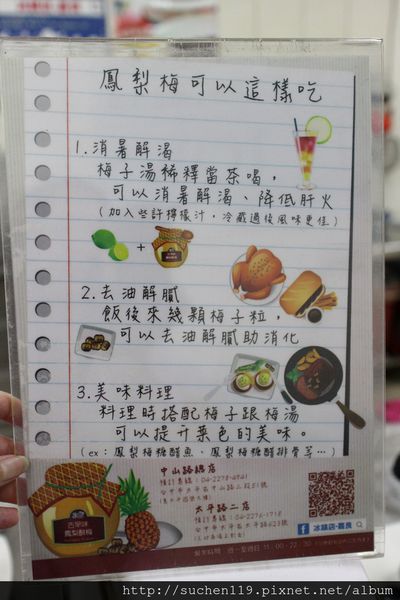 鳳梨梅可以這樣吃
1.消暑解渴
梅子湯稀釋當茶喝,
可以消暑解渴、降低肝火
(加入些許檸檬汁,冷藏過後風味更佳)
2.去油解膩
飯後來幾顆梅子粒,
可以去油解膩助消化
3.美味料理
料理時搭配梅子跟梅湯
可以提升菜色的美味。
(ex:鳳梨梅糖醋魚、鳳梨梅糖醋排骨等…)
古早味
鳳梨酵梅
中山路總店
預訂專線:04-2278-4941
太平路二店
預訂專線:04-2276-1718
台中市太平區太平路623號
冰鎮店-喜良
http://suchen119.pixnet.net/album